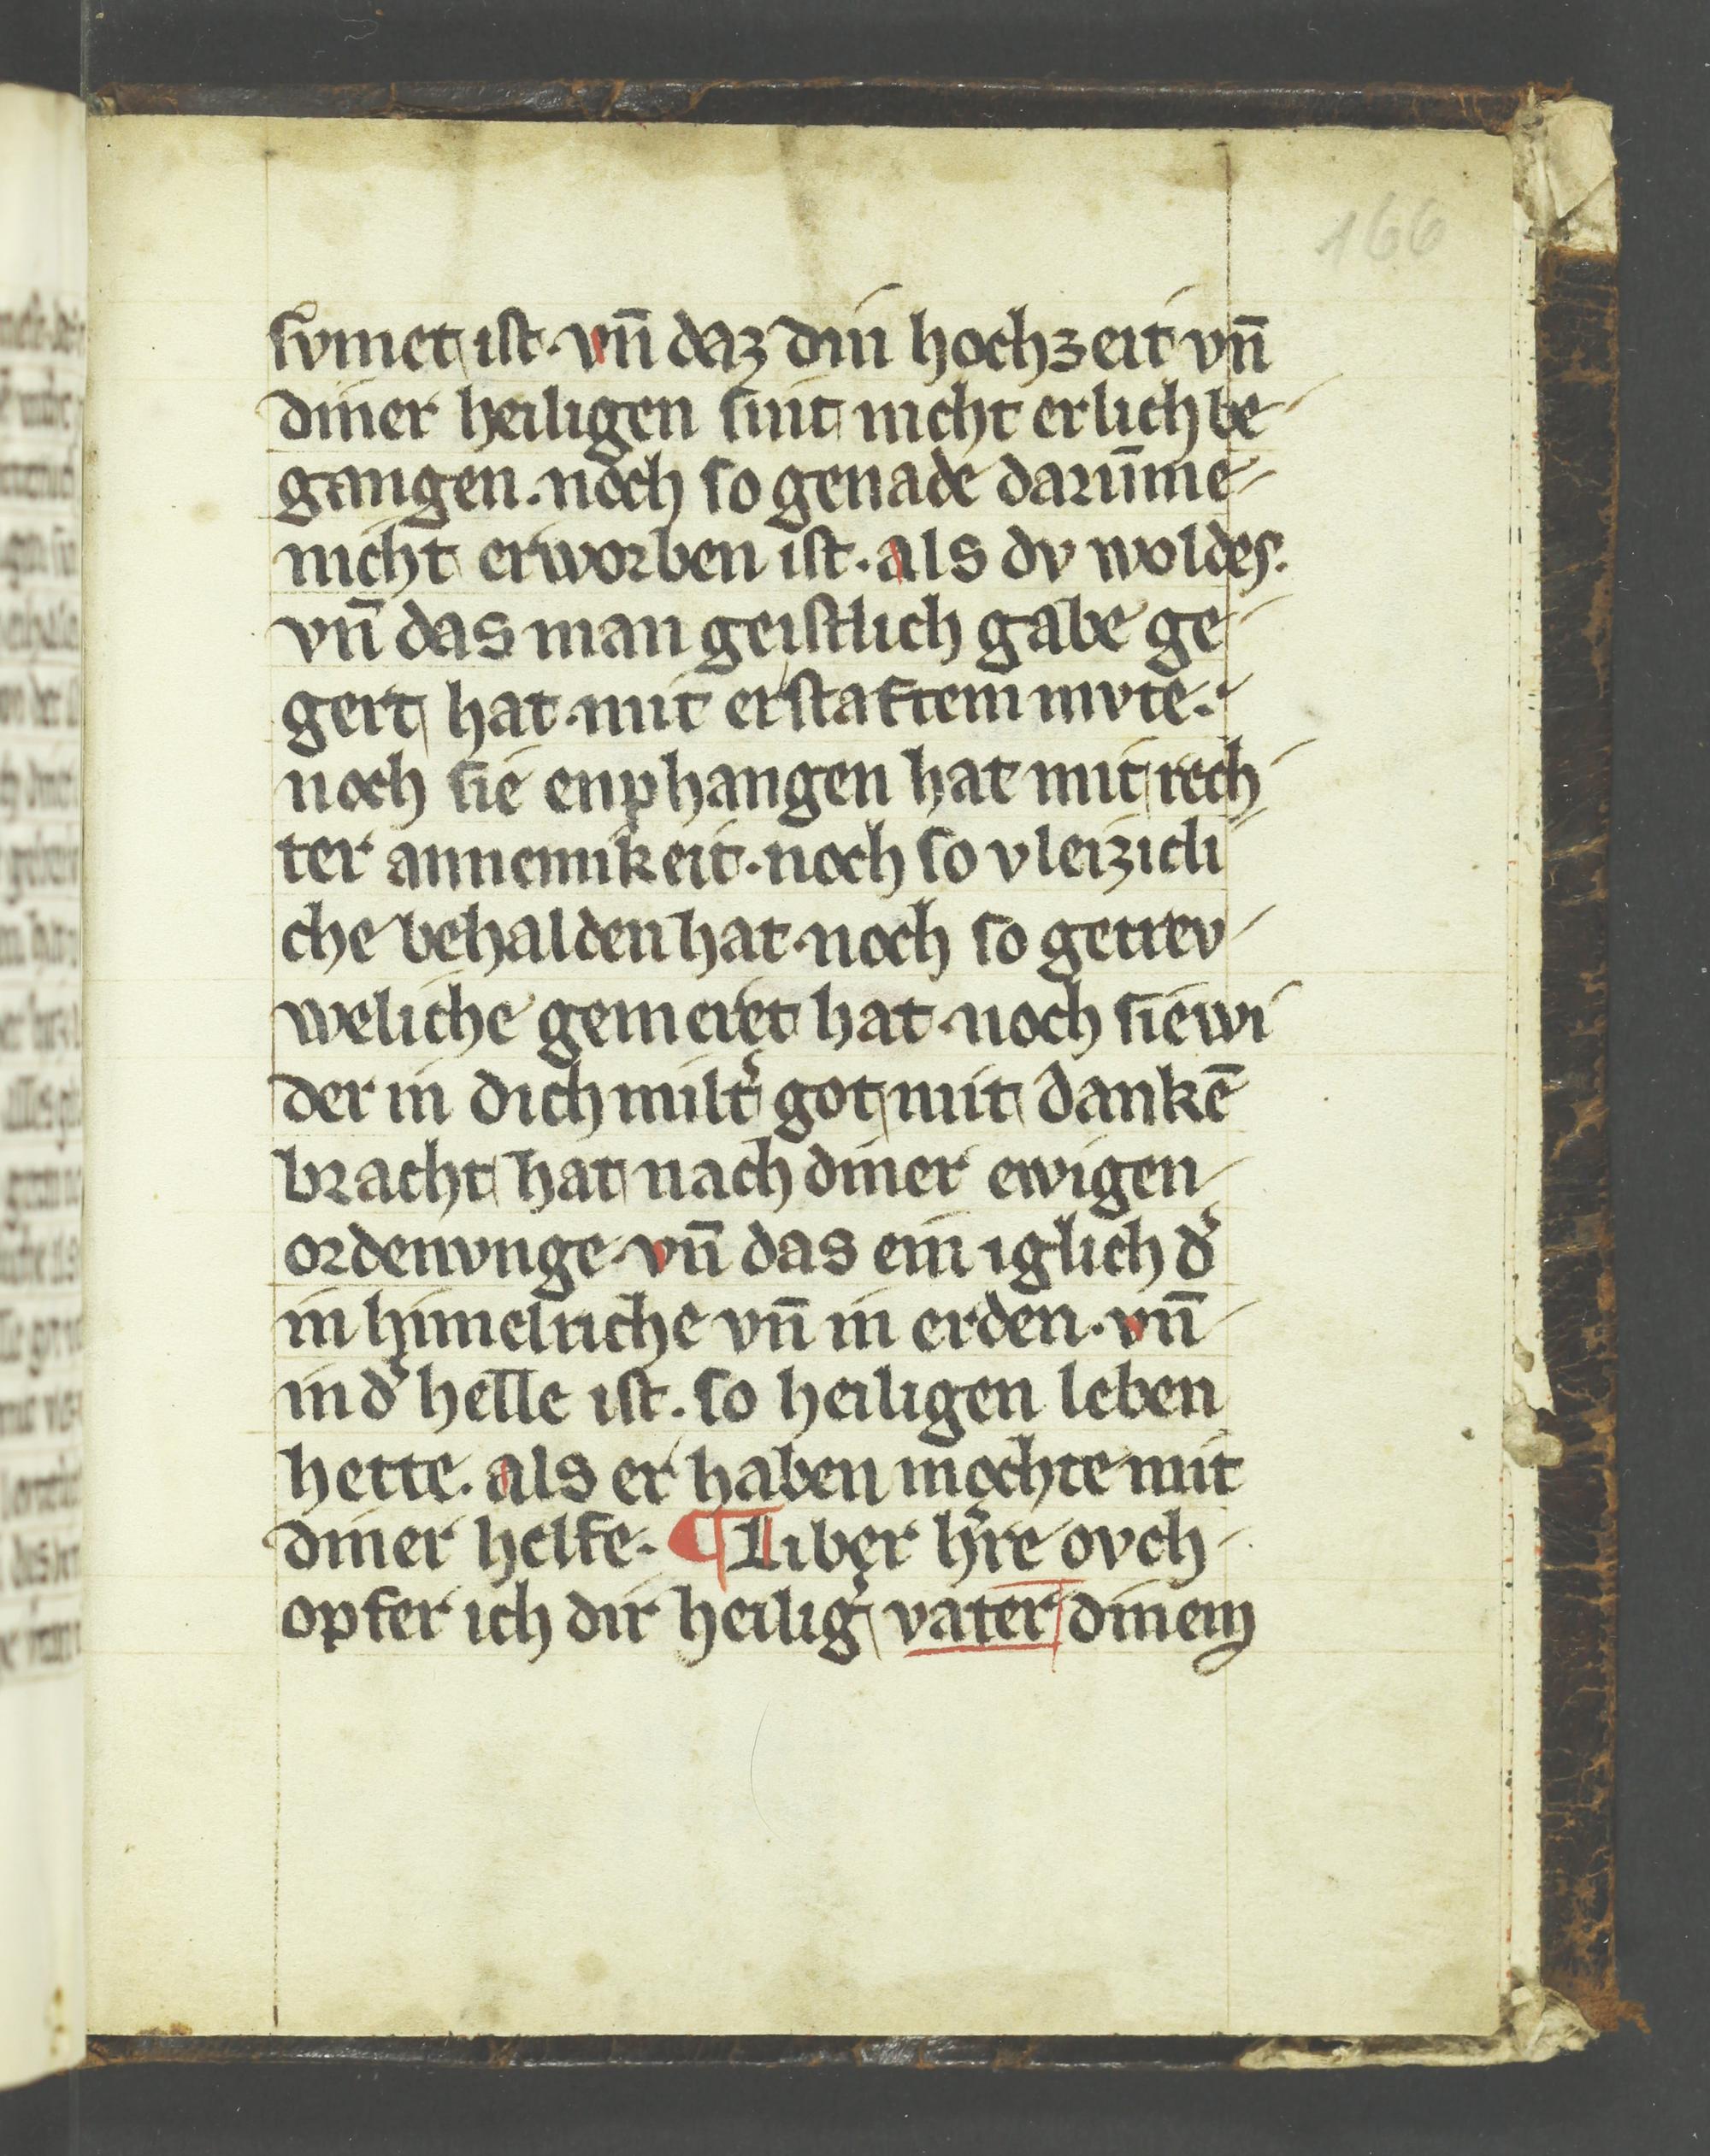 166
svmet ist. vn̄ daz din hochzeit vn̄
diner heiligen sint nicht erlich be-
gangen. noch so genade darūme-
nicht erworben ist. als dv woldes.
vn̄ das man geistlich gabe ge-
gert hat. mit erstaftem mvte.
noch sie enphangen hat mit rech
ter annemikeit. noch so vleizicli
che behalden hat. noch so getrev-
weliche gemeret hat. noch sie wi
der in dich milt͛ got mit dankē
bracht hat nach diner ewigen-
ordenvnge. vn̄ das ein iglich d͛
in himelriche vn̄ in erden. vn̄-
in d͛ helle ist. so heiligen leben
hette. als er haben mochte mit
diner helfe. ¶ Liber h͛re ovch-
opfer ich dir heilig͛ vater dinem